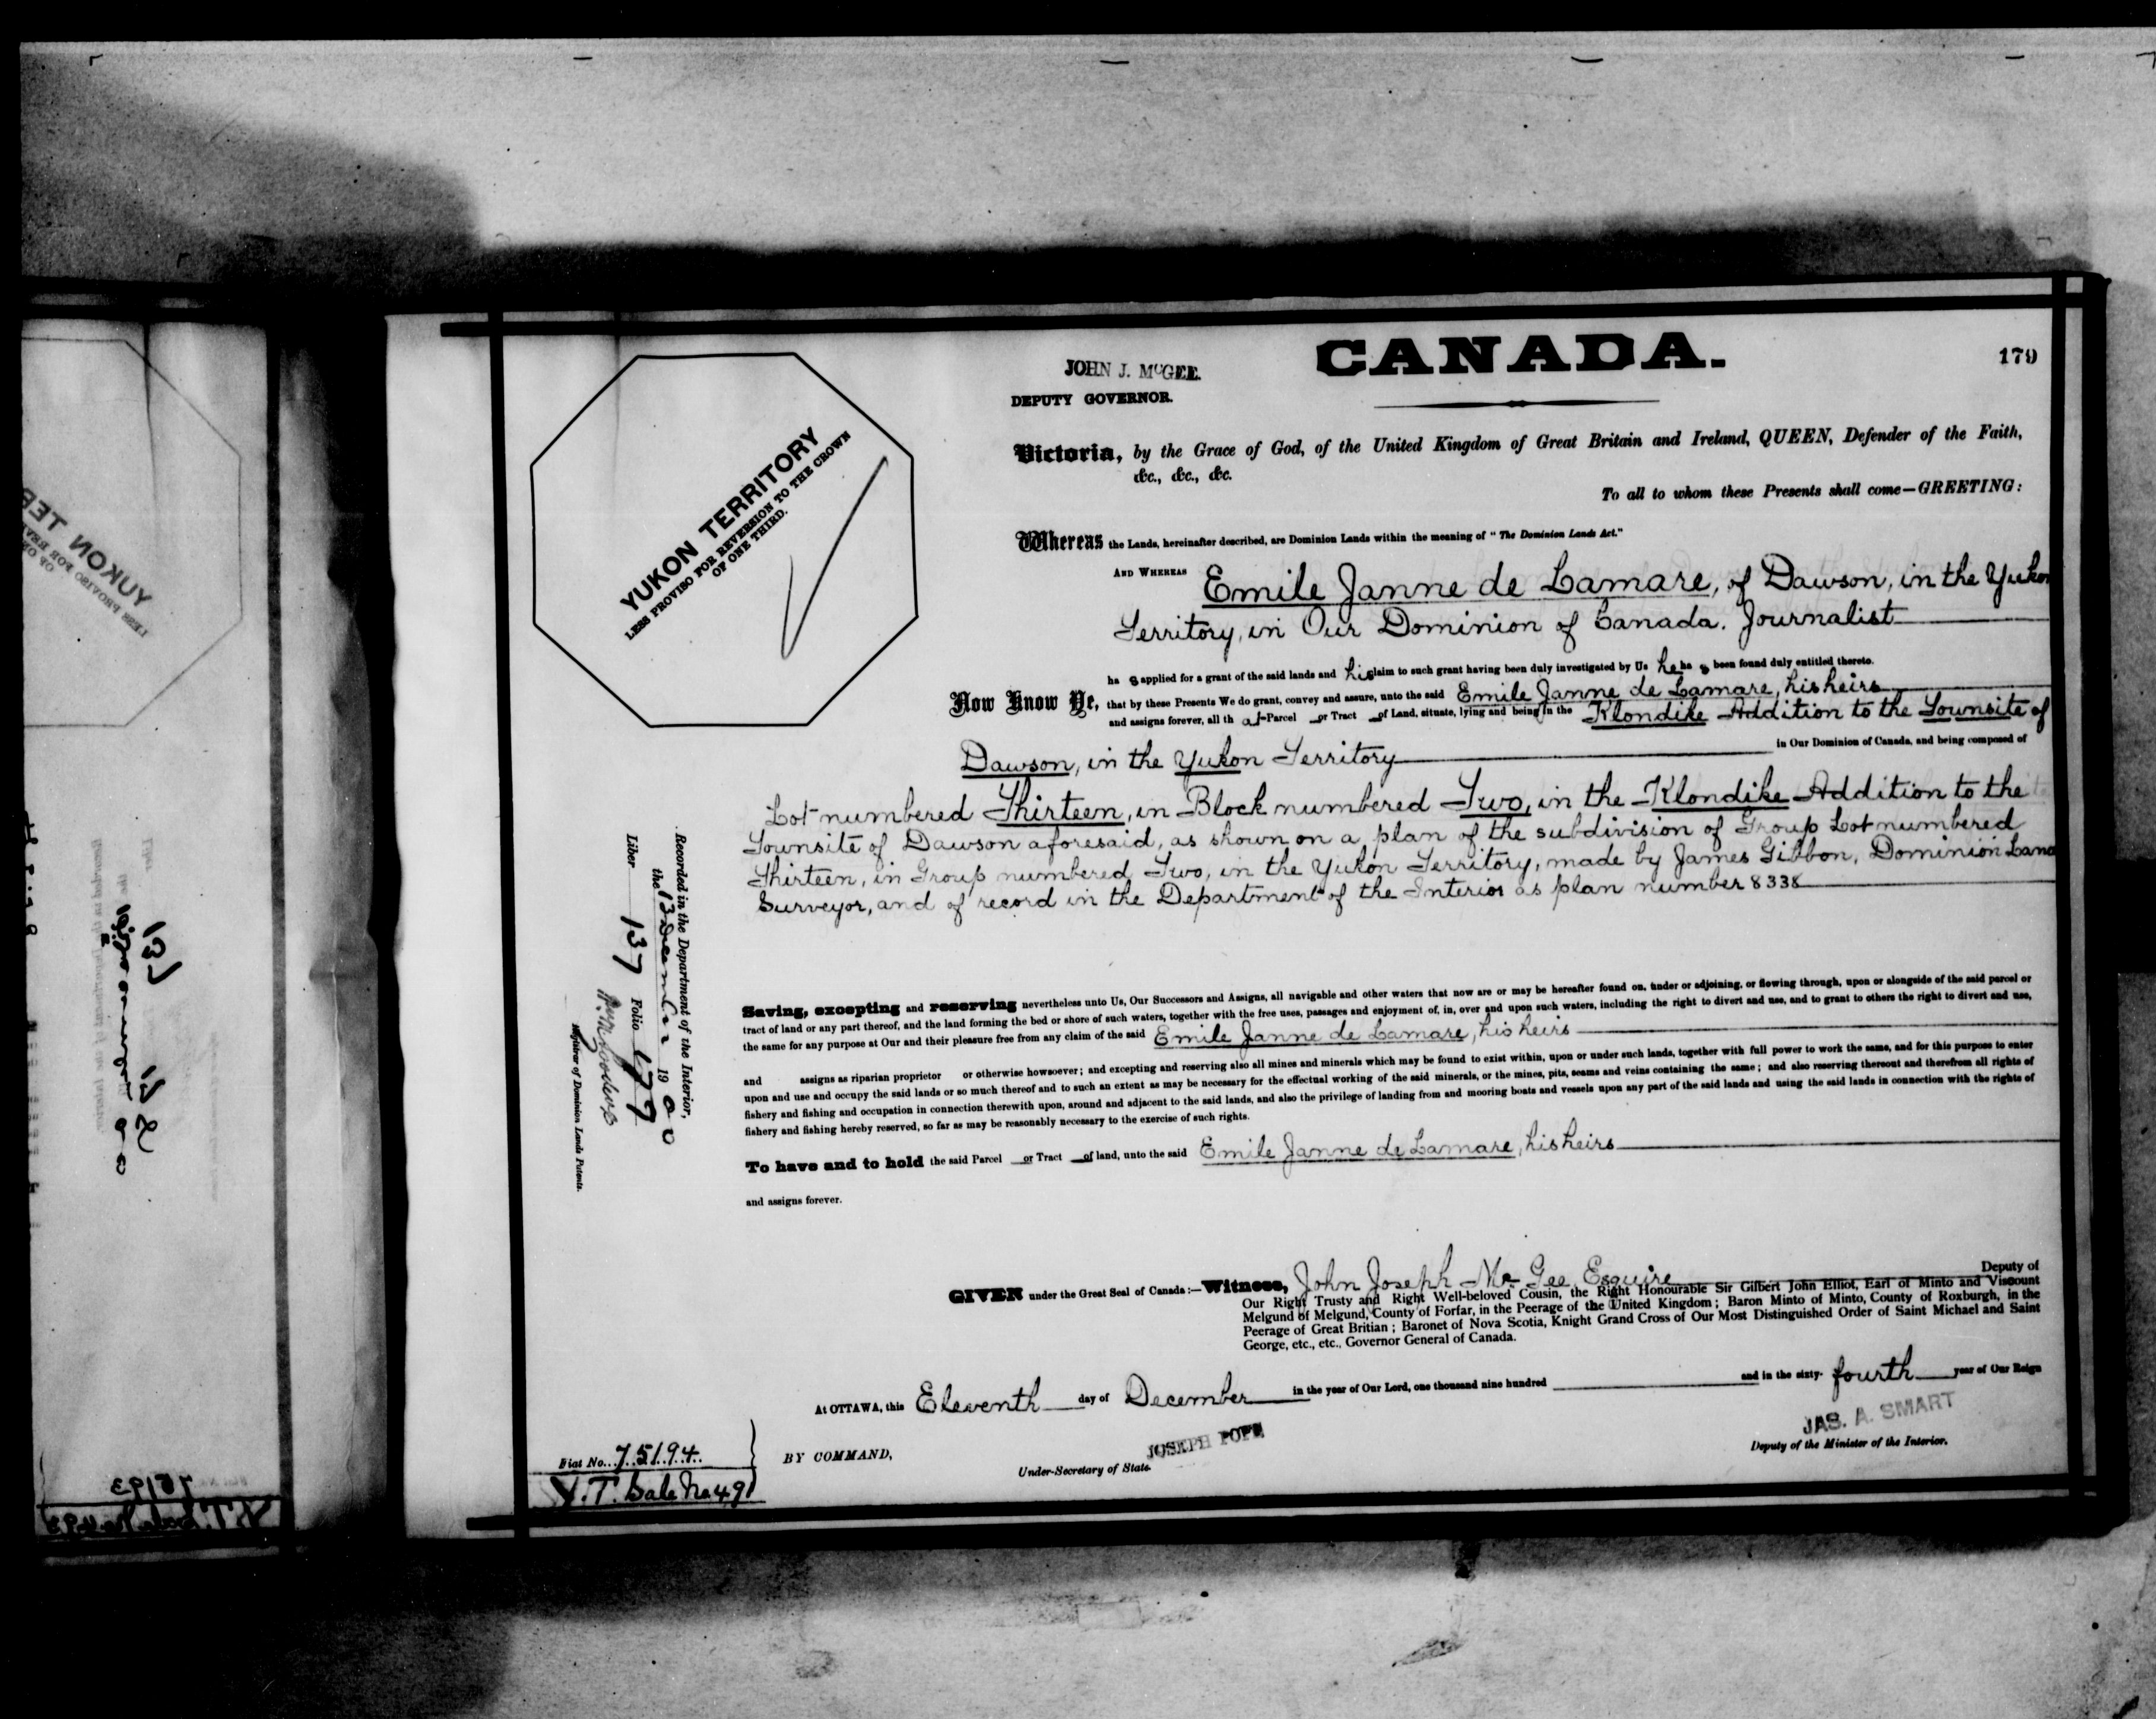 CANADA.
179
JOHN J. McGEE.
DEPUTY GOVERNOR.
YUKON TERRITORY
LESS PROVISO FOR REVERSION TO THE CROWN
OF ONE THIRD.
Victoria, by the Grace of God, of the United Kingdom of Great Britain and Ireland, QUEEN, Defender of the Faith,
&c., &c., &c.
To all to whom these Presents shall come—GREETING:
Whereas the Lands, hereinafter described, are Dominion Lands within the meaning of "The Dominion Lands Act."
AND WHEREAS Emile Janne de Lamare, of Dawson, in the Yukon
Territory, in Our Dominion of Canada. Journalist
ha s applied for a grant of the said lands and his claim to such grant having been duly investigated by Us he ha s been found duly entitled thereto.
Now Know Ye, that by these Presents We do grant, convey and assure, unto the said Emile Janne de Lamare, his heirs
and assigns forever, all th at Parcel or Tract of Land, situate, lying and being in the Klondike Addition to the Townsite of
Dawson, in the Yukon Territory in Our Dominion of Canada, and being composed of
Lot numbered Thirteen, in Block numbered Two, in the Klondike Addition to the
Townsite of Dawson aforesaid, as shown on a plan of the subdivision of Group Lot numbered
Thirteen, in Group numbered Two, in the Yukon Territory, made by James Gibbon, Dominion Land
Surveyor, and of record in the Department of the Interior as plan number 8338
Recorded in the Department of the Interior,
the 13 December 1900
Liber 137 Folio 179
Registrar of Dominion Lands Patents.
Saving, excepting and reserving nevertheless unto Us, Our Successors and Assigns, all navigable and other waters that now are or may be hereafter found on, under or adjoining, or flowing through, upon or alongside of the said parcel or
tract of land or any part thereof, and the land forming the bed or shore of such waters, together with the free uses, passages and enjoyment of, in, over and upon such waters, including the right to divert and use, and to grant to others the right to divert and use,
the same for any purpose at Our and their pleasure free from any claim of the said Emile Janne de Lamare, his heirs
and assigns as riparian proprietor or otherwise howsoever; and excepting and reserving also all mines and minerals which may be found to exist within, upon or under such lands, together with full power to work the same, and for this purpose to enter
upon and use and occupy the said lands or so much thereof and to such an extent as may be necessary for the effectual working of the said minerals, or the mines, pits, seams and veins containing the same; and also reserving thereout and therefrom all rights of
fishery and fishing and occupation in connection therewith upon, around and adjacent to the said lands, and also the privilege of landing from and mooring boats and vessels upon any part of the said lands and using the said lands in connection with the rights of
fishery and fishing hereby reserved, so far as may be reasonably necessary to the exercise of such rights.
To have and to hold the said Parcel or Tract of land, unto the said Emile Janne de Lamare, his heirs
and assigns forever.
GIVEN under the Great Seal of Canada:—Witness, John Joseph McGee, Esquire Deputy of
Our Right Trusty and Right Well-beloved Cousin, the Right Honourable Sir Gilbert John Elliot, Earl of Minto and Viscount
Melgund of Melgund, County of Forfar, in the Peerage of the United Kingdom; Baron Minto of Minto, County of Roxburgh, in the
Peerage of Great Britian; Baronet of Nova Scotia, Knight Grand Cross of Our Most Distinguished Order of Saint Michael and Saint
George, etc., etc., Governor General of Canada.
At OTTAWA, this Eleventh day of December in the year of Our Lord, one thousand nine hundred and in the sixty-fourth year of Our Reign
BY COMMAND,
JOSEPH POPE
Under-Secretary of State.
JAS. A. SMART
Deputy of the Minister of the Interior.
Fiat No. 75194
Y.T. Sale No 491